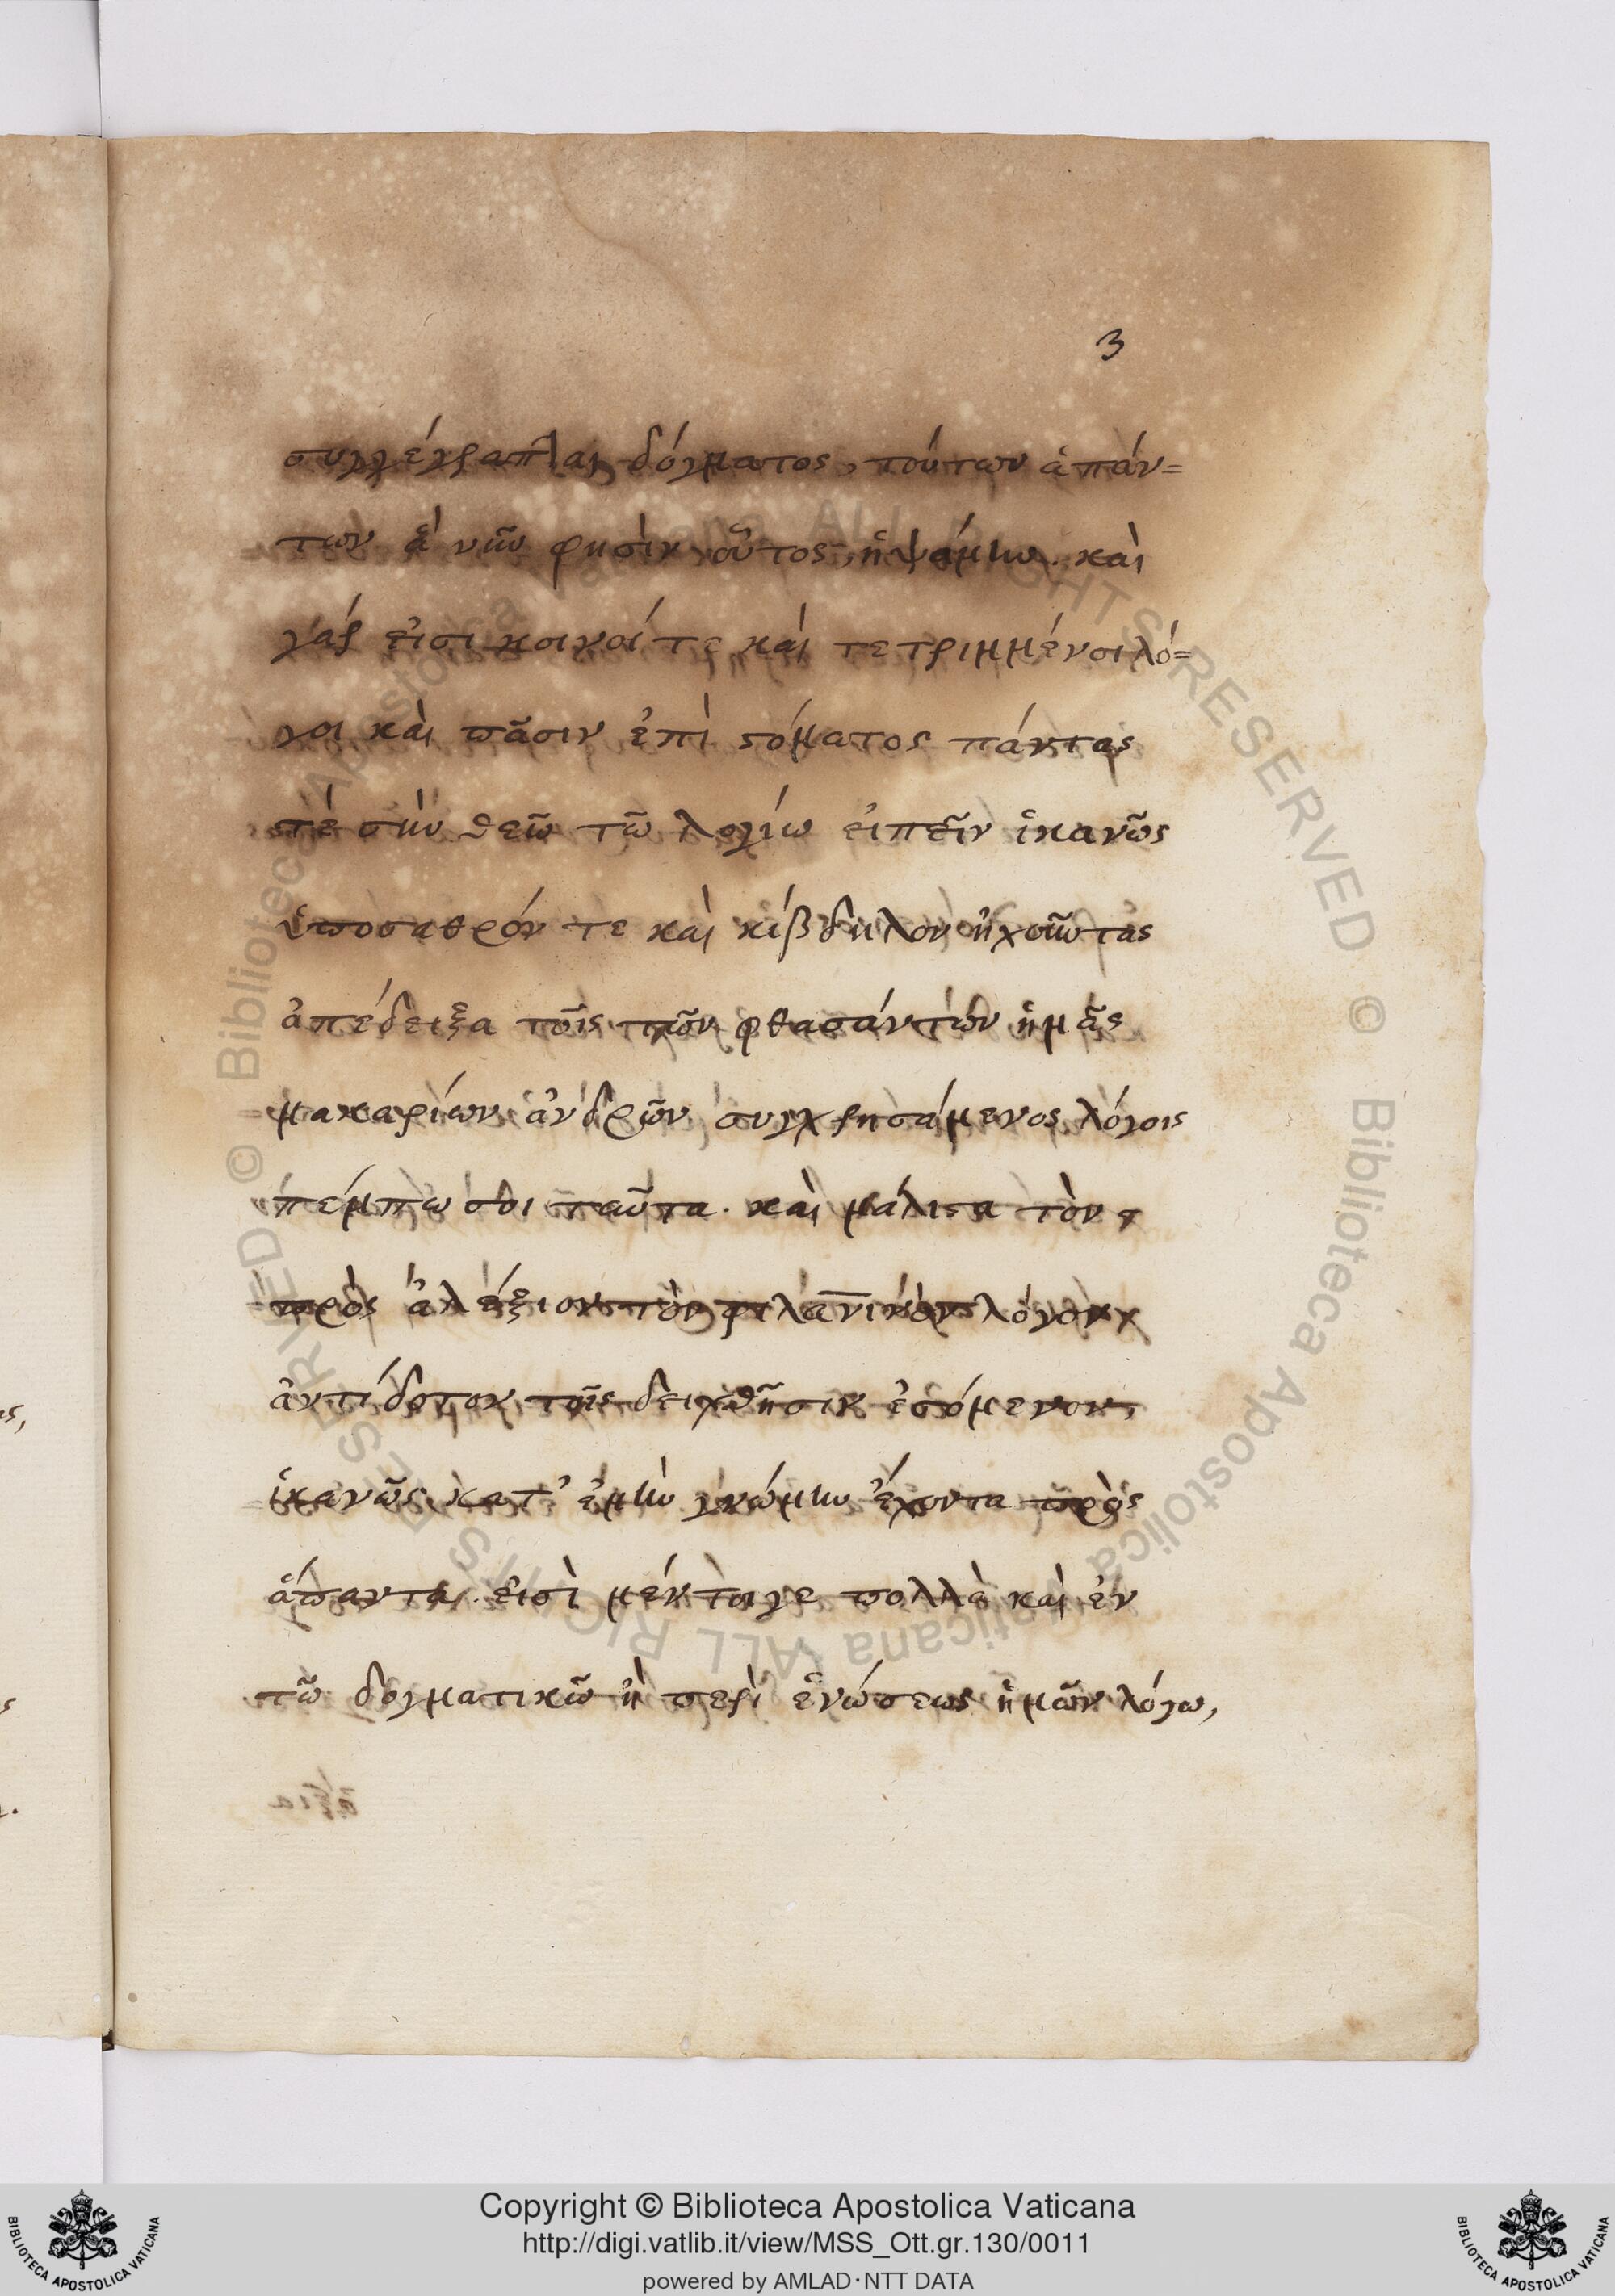 3
συγγέγραπται δόγματος, τούτων ἁπάν=
των ἃ νῦν φησὶν οὗτος, ἡψάμην. καὶ
γάρ εἰσι κοινοί τε καὶ τετριμμένοι λό=
γοι καὶ πᾶσιν ἐπὶ στόματος πάντας
τὲ σὺν θεῶ τῶ λογίω εἰπεῖν ἱκανῶς
ὑπόσαθρόν τε καὶ κίβδηλον ἠχοῦντας
ἀπέδειξα τοῖς τῶν φθασάντων ἡμᾶς
μακαρίων ἀνδρῶν συγχρησάμενος λόγοις
πέμπω σοι ταῦτα. καὶ μάλιστα τὸν
πρὸς ἀλέξιον τὸν λόγον
ἀντίδοτον τοῖς δειχθῆσιν ἐσόμενον,
ἱκανῶς κατ' ἐμὴν γνώμην ἔχοντα πρὸς
ἅπαντα. εἰσὶ μέντοιγε πολλὰ καὶ ἐν
τῶ δογματικῶ ἢ περὶ ἑνώσεως ἡμῶν λόγω,
Copyright © Biblioteca Apostolica Vaticana
http://digi.vatlib.it/view/MSS_Ott.gr.130/0011
powered by AMLAD·NTT DATA
BIBLIOTECA APOSTOLICA VATICANA
BIBLIOTECA APOSTOLICA VATICANA
© Biblioteca Apostolica Vaticana ALL RIGHTS RESERVED © Biblioteca Apostolica Vaticana ALL RIGHTS RESERVED